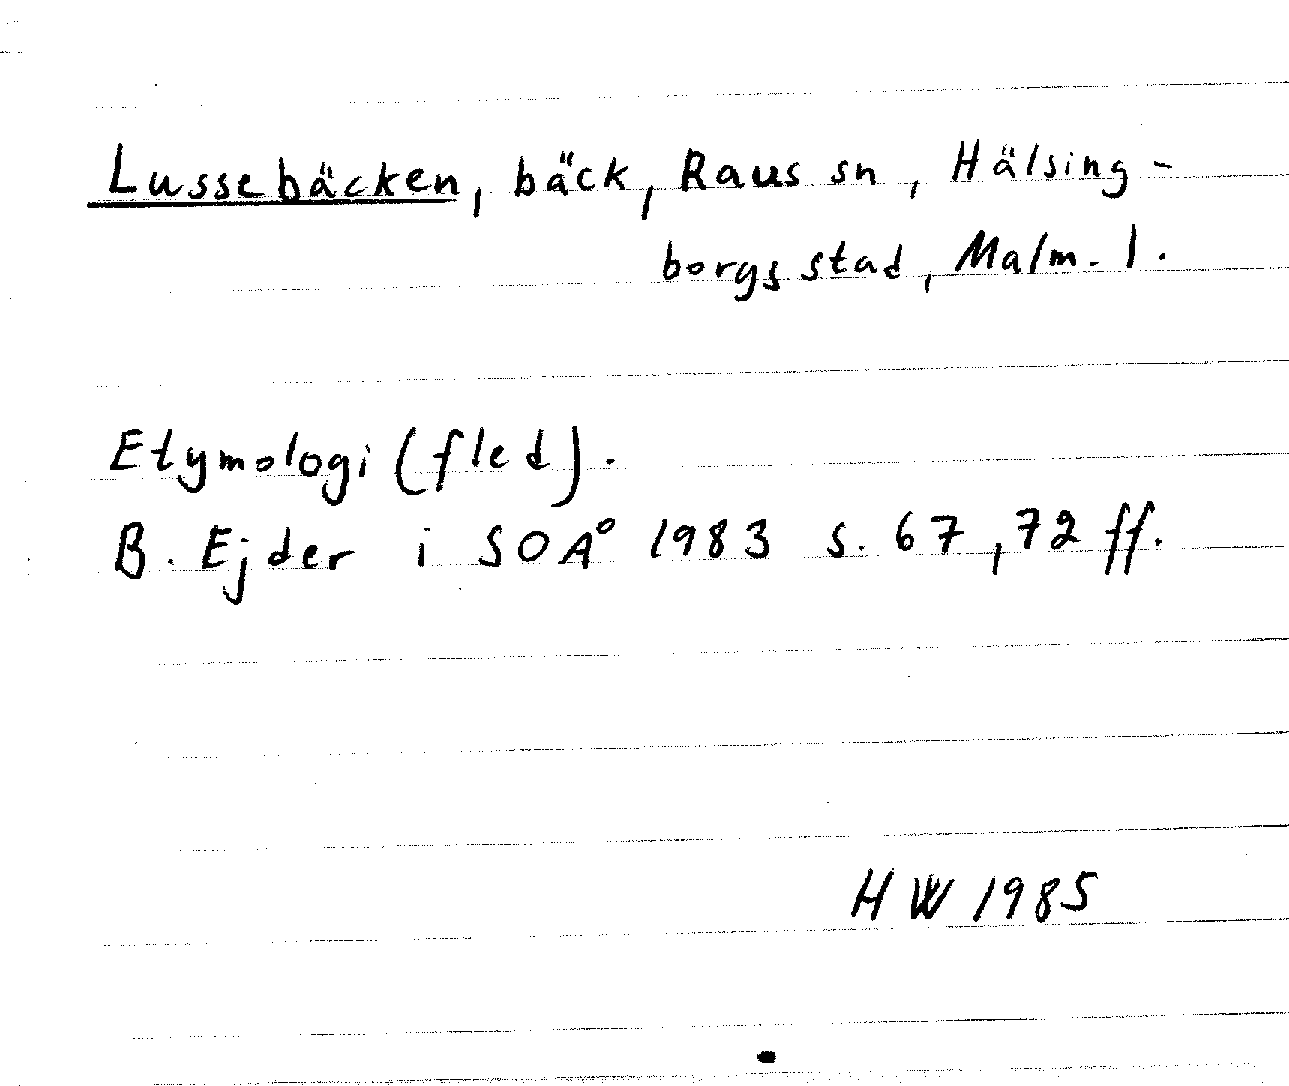 Lussebäcken, bäck, Raus sn, Hälsing-
borgs stad, Malm. l.
Etymologi (fled).
B. Ejder i SOÅ 1983 s. 67, 72 ff.
HW 1985